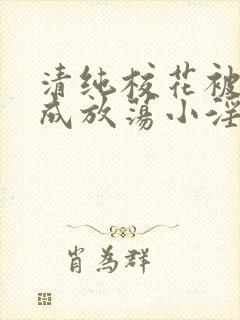 清纯校花被
成放荡小淫
肖为群